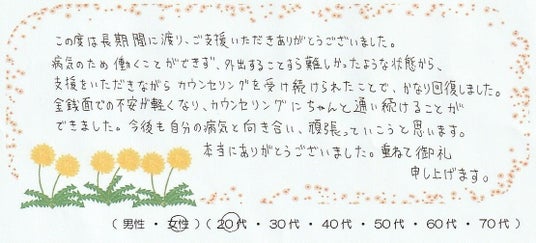 この度は長期間に渡り、ご支援いただきありがとうございました。
病気のため働くことができず、外出することすら難しかったような状態から、
支援をいただきながらカウンセリングを受け続けられたことで、かなり回復しました。
金銭面での不安が軽くなり、カウンセリングにちゃんと通い続けることが
できました。今後も自分の病気と向き合い、頑張っていこうと思います。
本当にありがとうございました。重ねて御礼
申し上げます。
(男性・女性)(20代・30代・40代・50代・60代・70代)